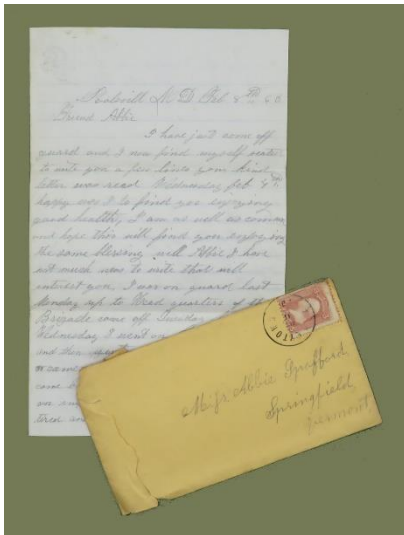 Poolsvill M D Feb 8 TH 63
Friend Abbie
I have just come off
guard and I now find myself
to write you a few lines your kind
letter was read Wednesday Feb 4
happy was I to find you enjoying
good healthy I am as well as common
and hope this will find you enjoying
the same blessing well Abbie I have
not much news to write that will
interest you. I was on guard last
Monday up to Head quarters of the
Brigade come off Tuesday
Wednesday I went on
and then
came
come
our
tired
Miss Abbie Spafford
Springfield
Vermont